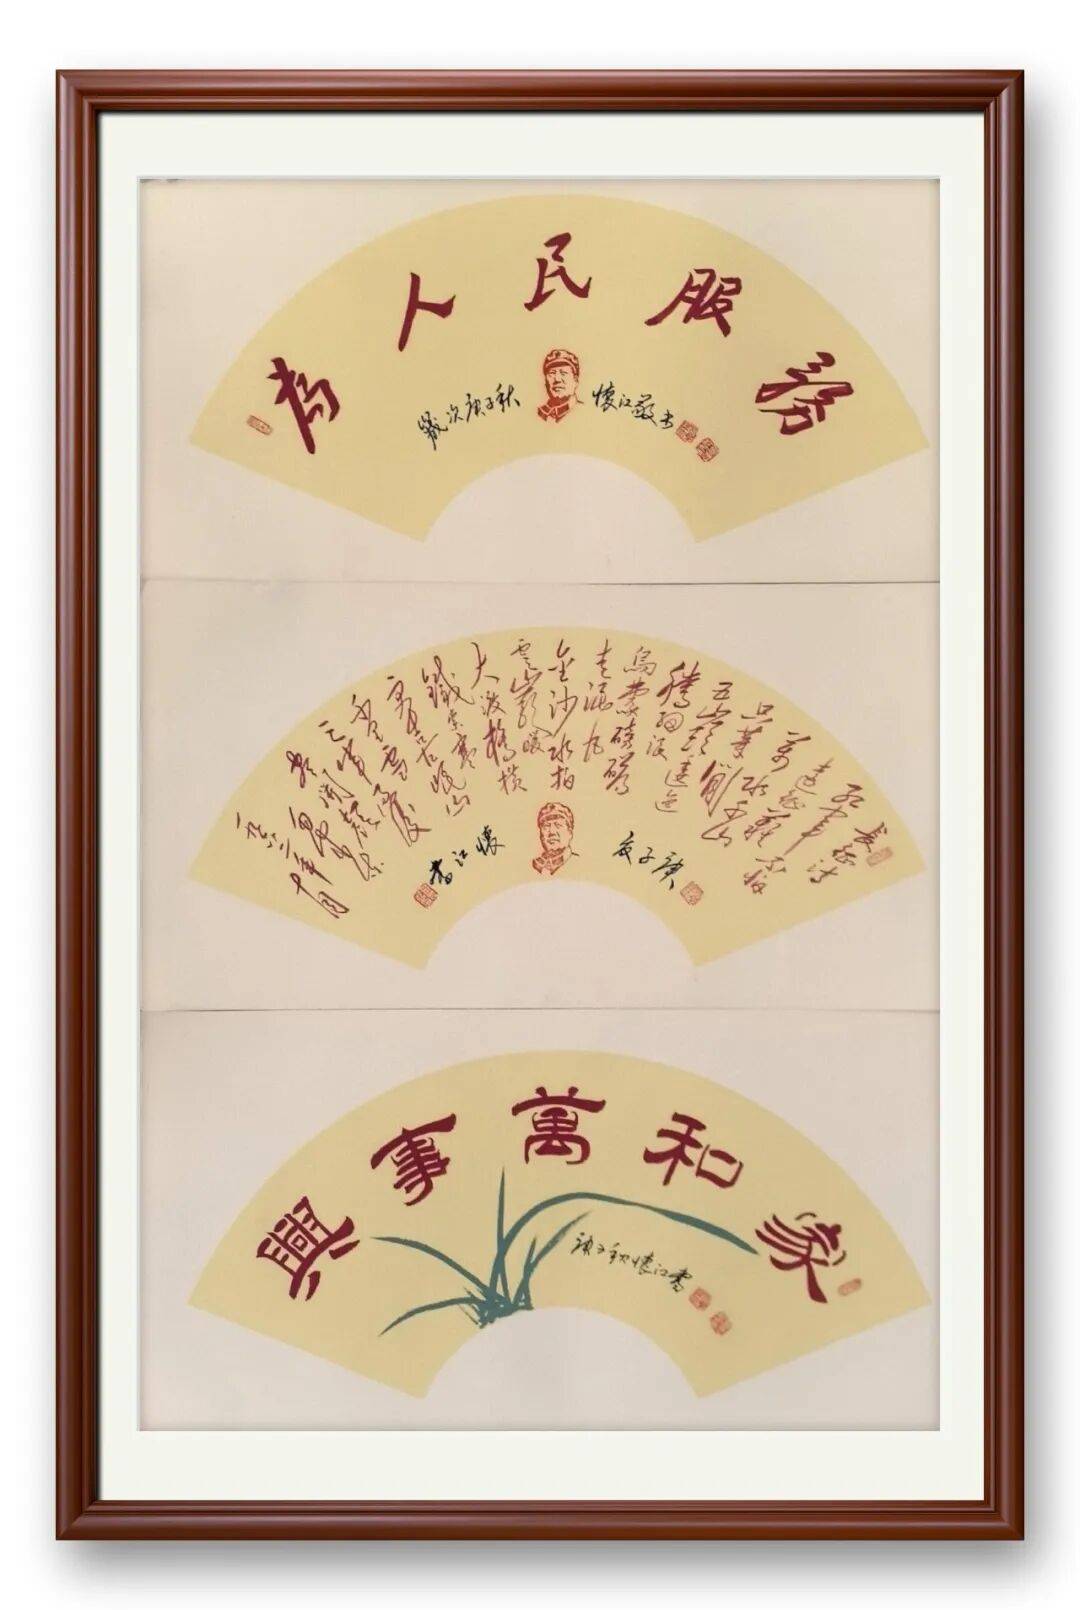 为人民服務
歲次庚子秋
懷江敬书
長征诗
紅軍不怕
遠征难
萬水千山
只等闲
五嶺逶迤
騰細浪
烏蒙磅礴
走泥丸
金沙水拍
雲崖暖
大渡橋横
鐵索寒
更喜岷山
千里雪
三軍過後
盡開顏
毛澤東
一九六二年十月
庚子夏
懷江書
家和萬事興
庚子秋懷江書